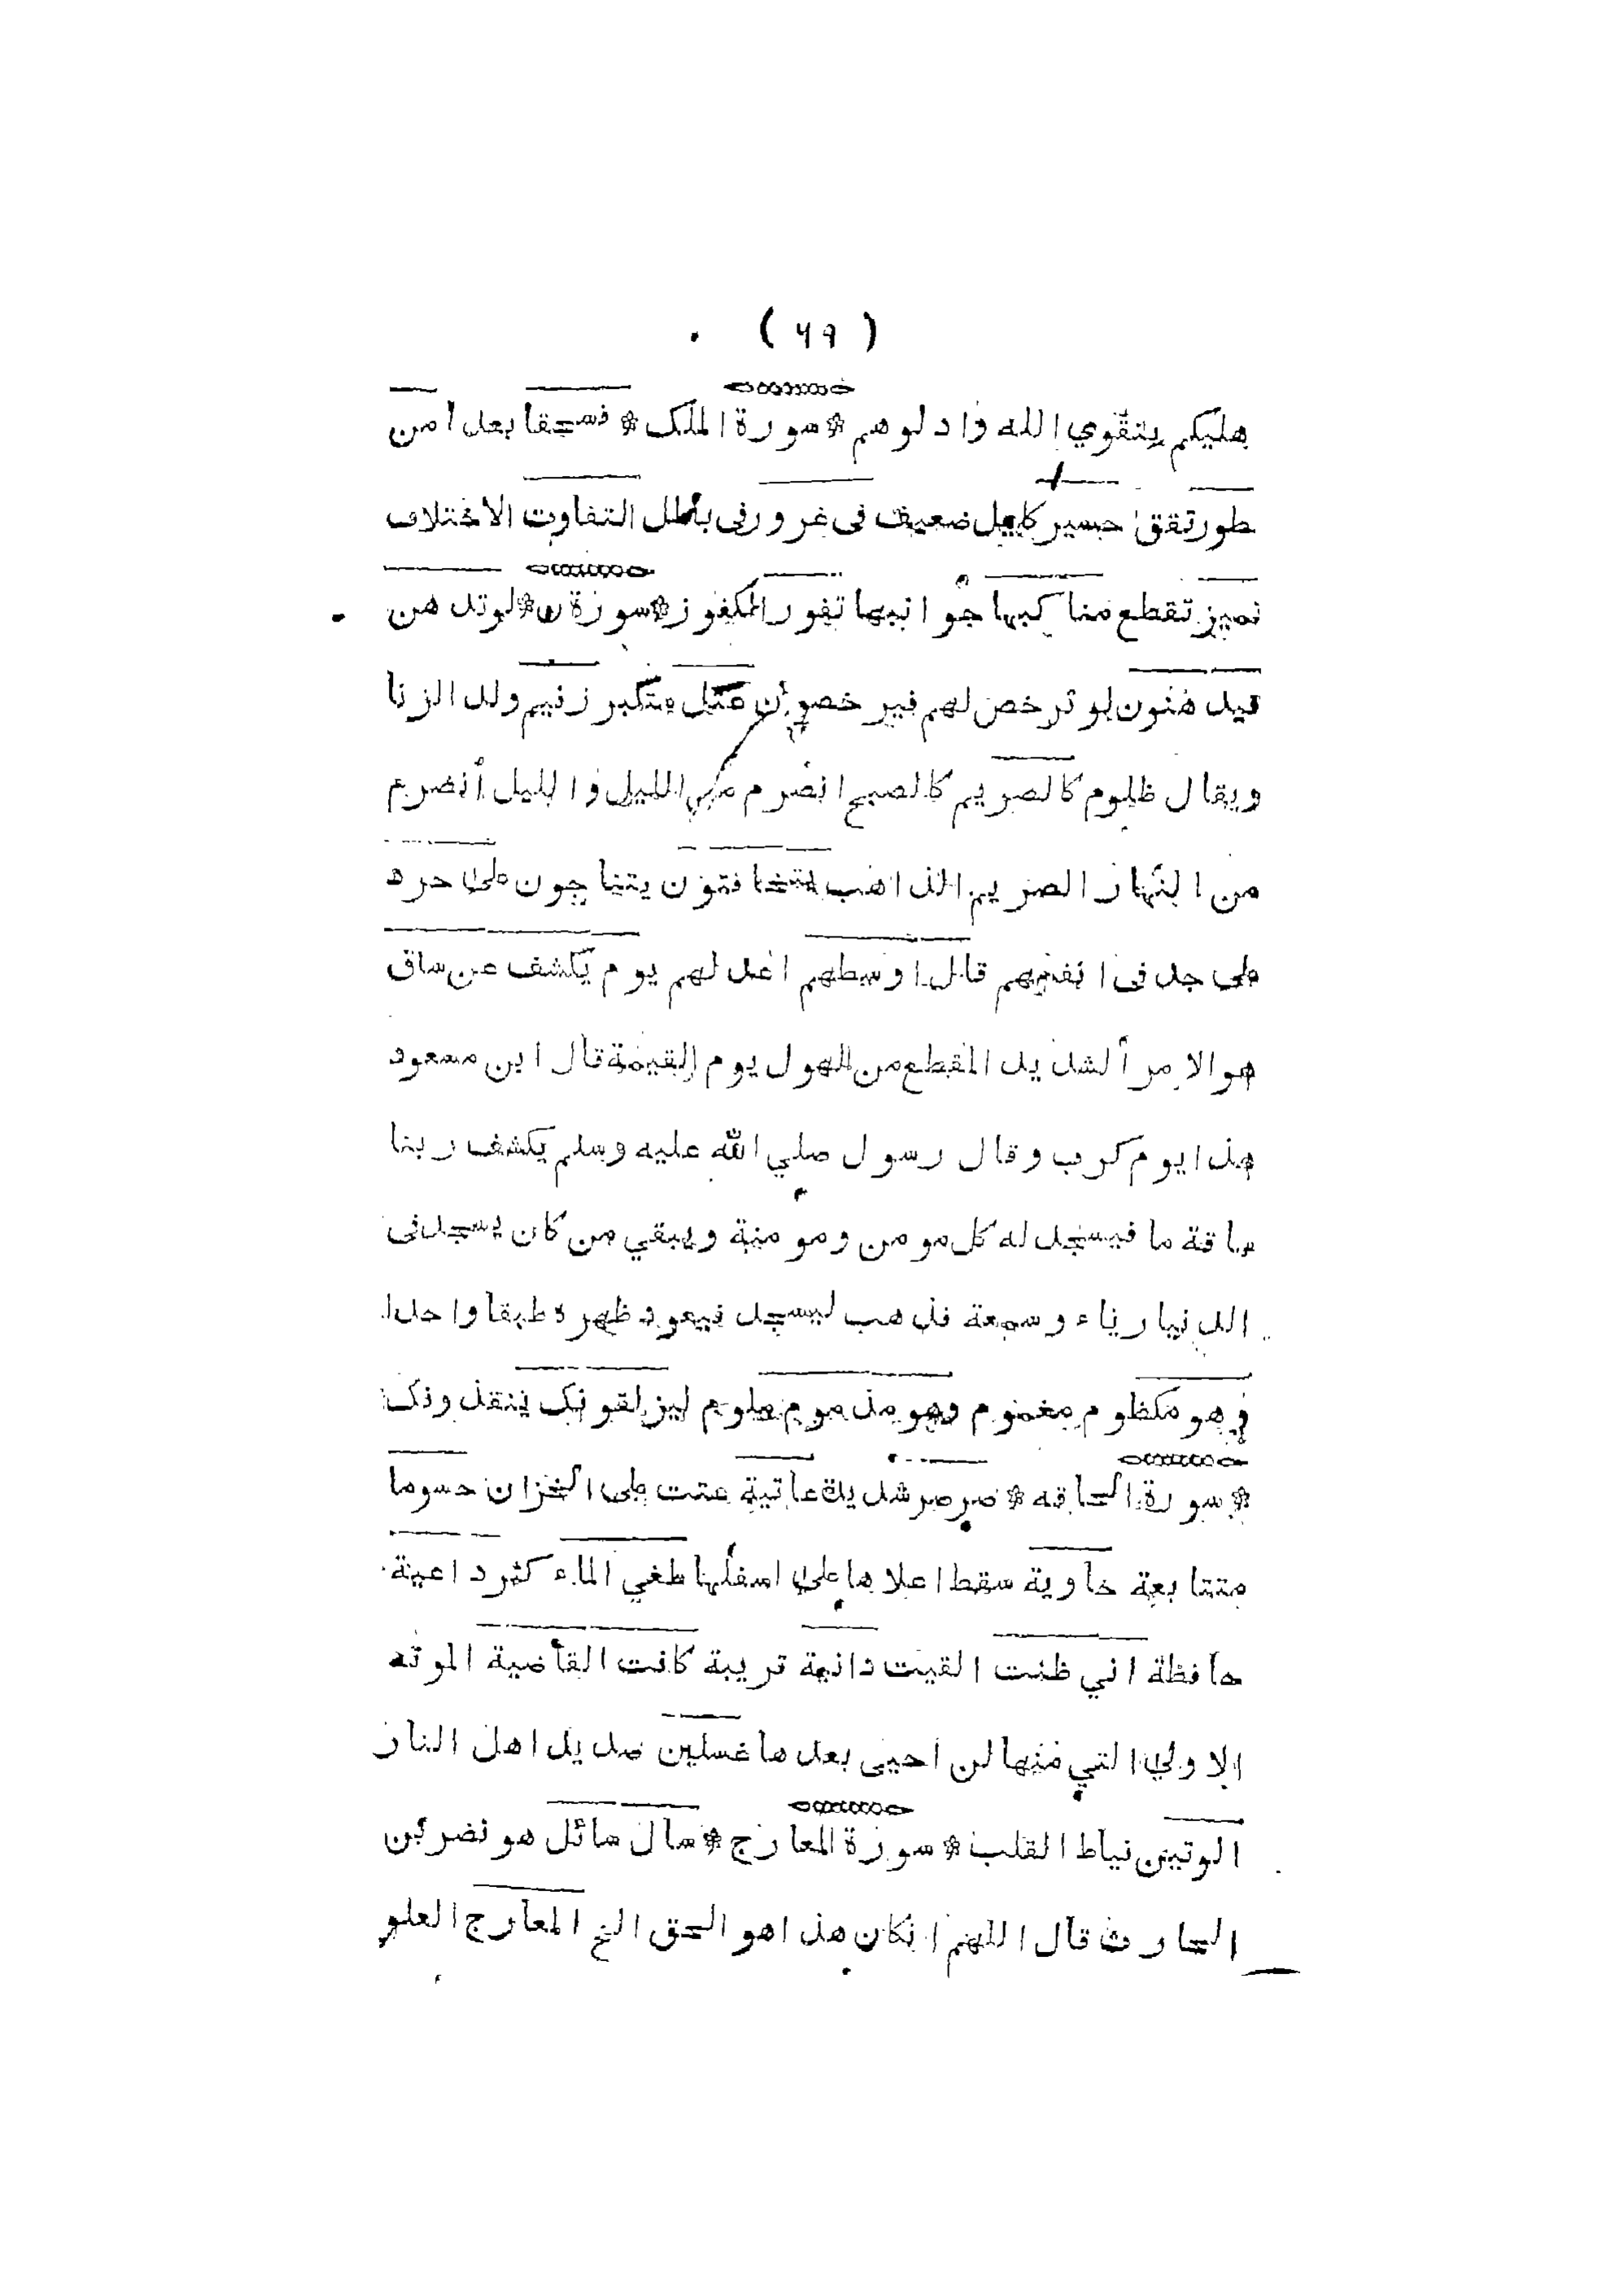 ( ٦٩ )
عليكم بتقوي الله وادلوهم * سورة الملك * فسحقا بعدا من
طور تقق حسير كليل ضعيف فى غرور فى باطل التفاوت الاختلاف
تميز تقطع مناكبها جوانبها تفور الكفور * سورة ن * لو تدهن
فيدهنون لو ترخص لهم فيرخصون عتل متكبر زنيم ولد الزنا
ويقال ظلوم كالصريم كالصبح انصرم من الليل والليل أنصرم
من النهار الصريم الذاهب يتخافتون يتناجون على حرد
على جد فى انفسهم قال اوسطهم اعدلهم يوم يكشف عن ساق
هو الامر ألشديد المقطع من الهول يوم القيمة قال ابن مسعود
هذا يوم كرب وقال رسول صلي الله عليه وسلم يكشف ربنا
ساقة ما فيسجد له كل مومن ومومنة ويبقي من كان يسجد فى
الدنيا رياء وسمعة فذهب ليسجد فيعود ظهره طبقا واحدا
وهو مكظوم مغموم وهو مذموم ملوم ليزلقونك ينقذونك
* سورة الحاقه * صرصر شديدة عاتية عتت على الخزان حسوما
متتابعة خاوية سقط اعلاها علي اسفلها طغي الماء كثر داعية
حافظة اني ظننت القيت دانية قريبة كانت القاضية الموته
الاولي التي منها لن احيى بعدها غسلين صديد اهل النار
الوتين نياط القلب * سورة المعارج * سال سائل هو نضر بن
الحارث قال اللهم ان كان هذا هو الحق الخ المعارج العلو